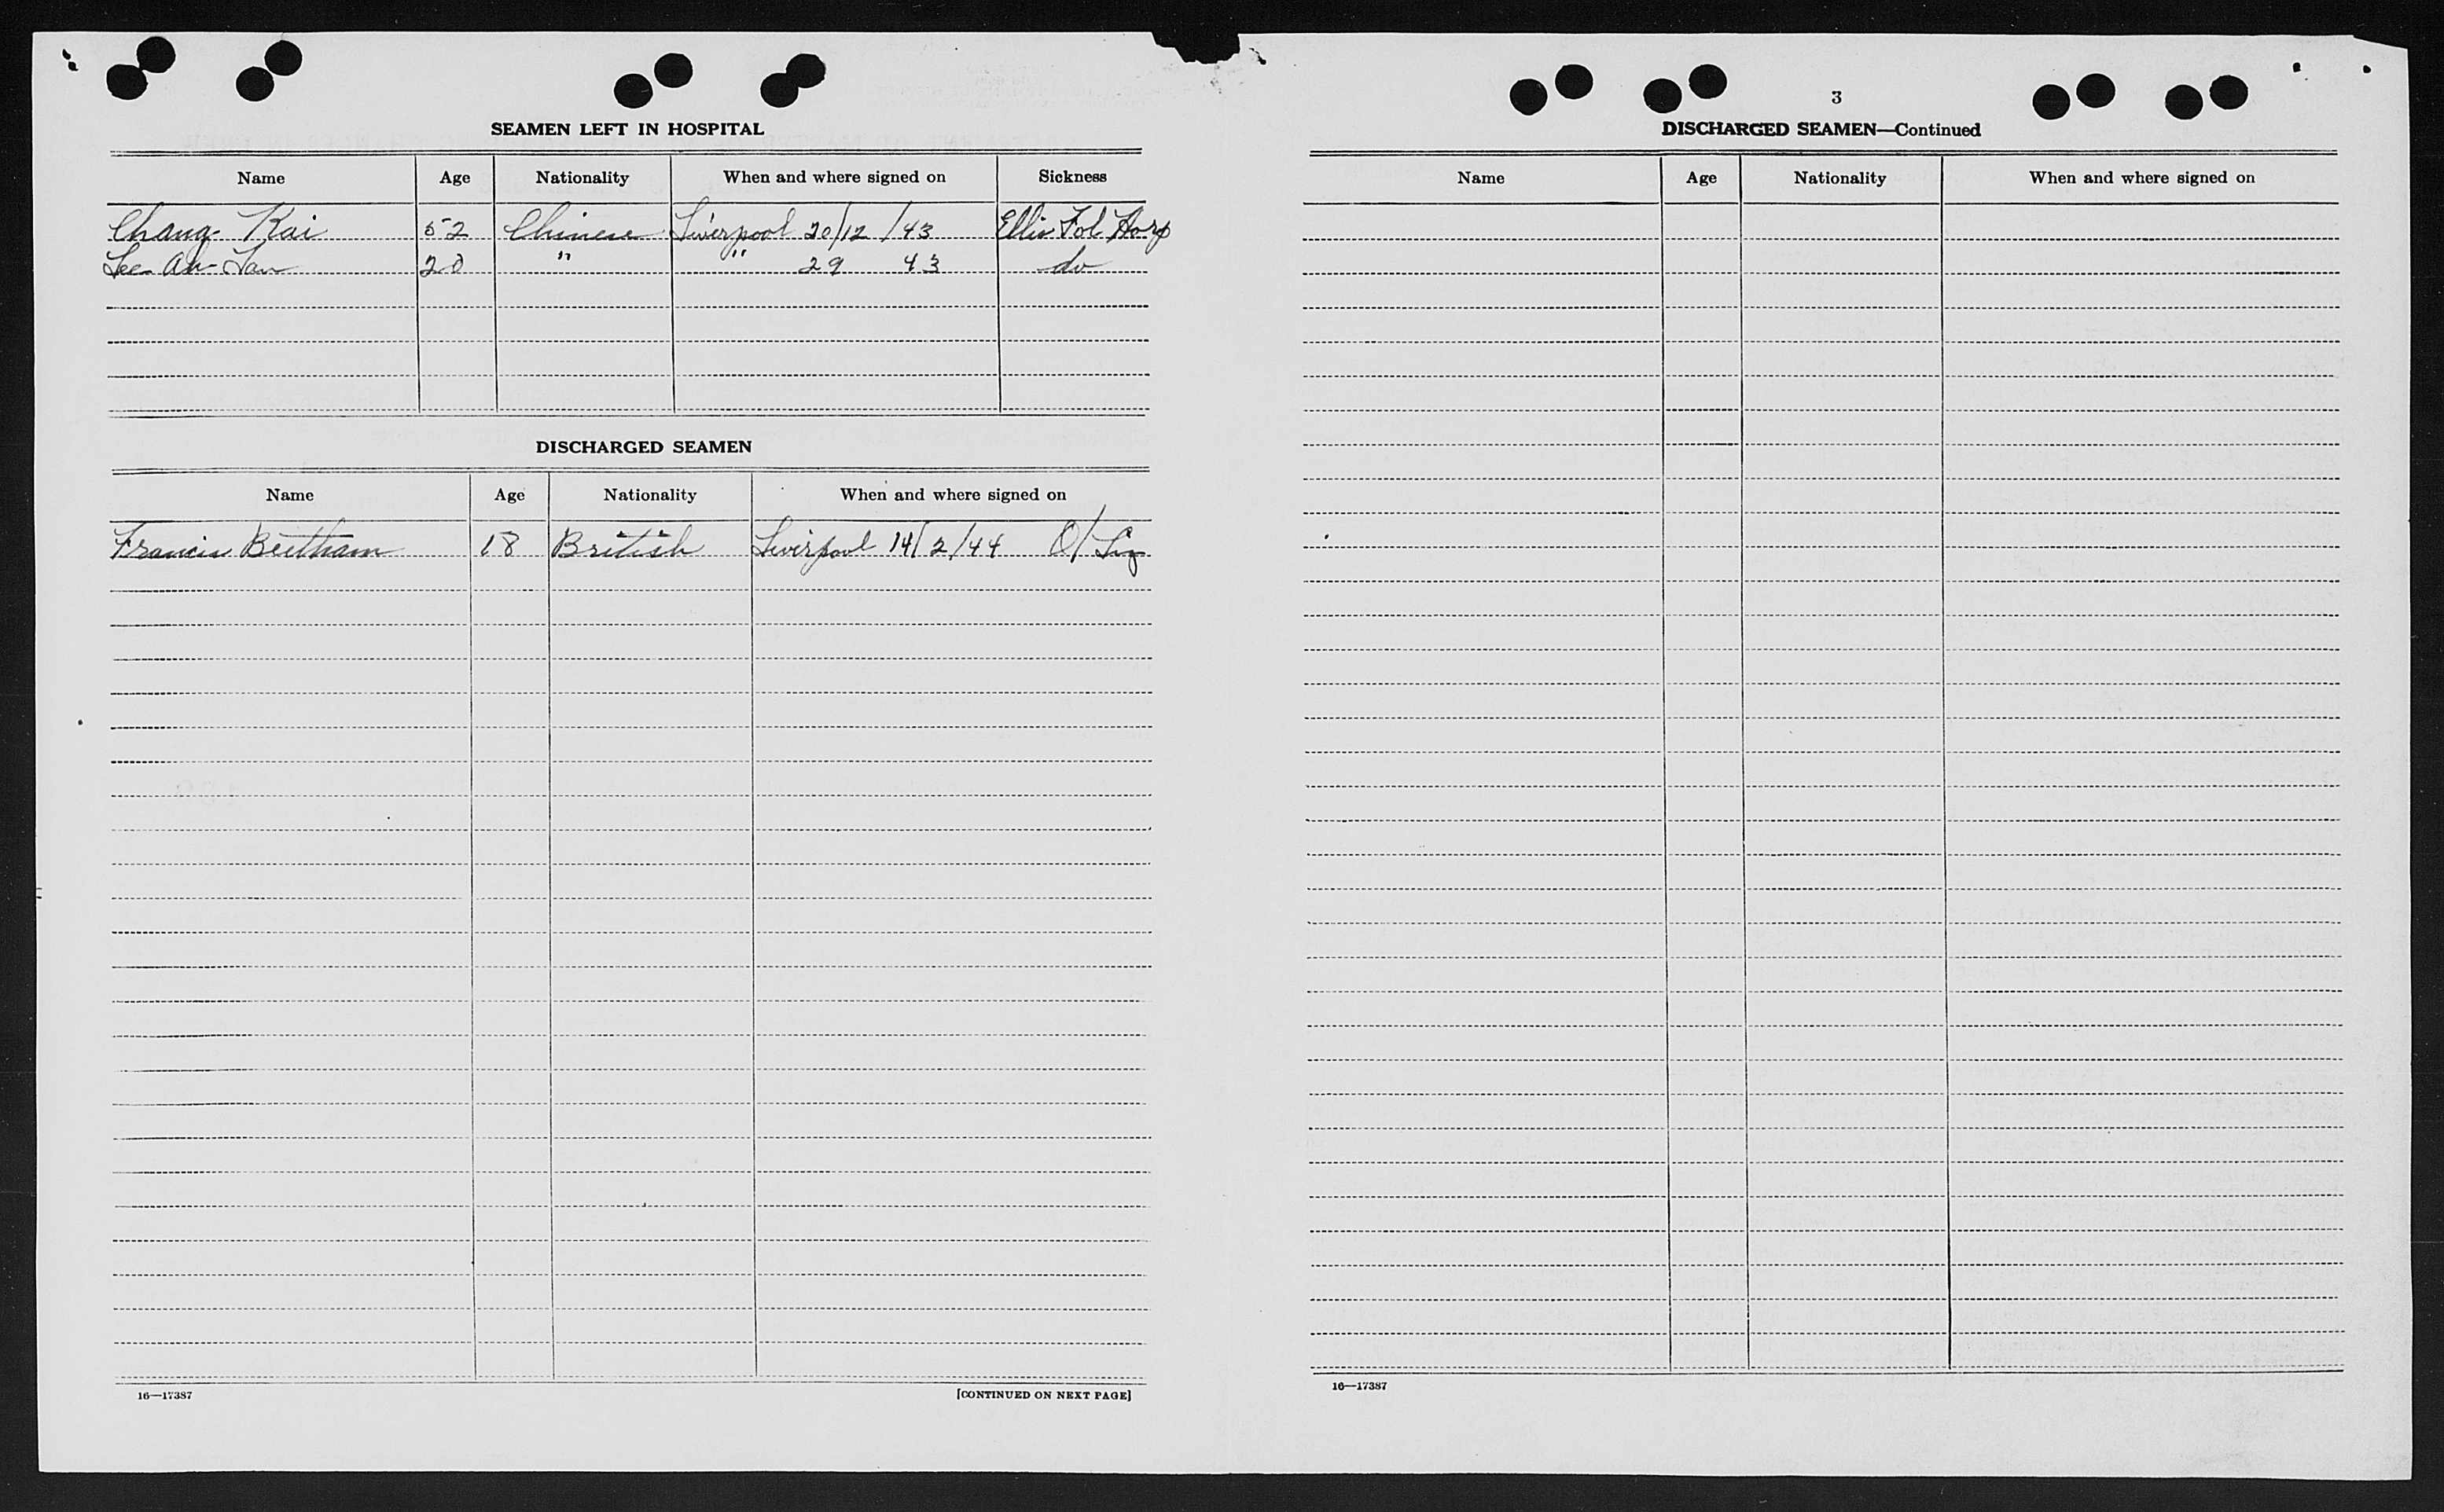 SEAMEN LEFT IN HOSPITAL
Name Age Nationality When and where signed on Sickness
Chang Kai 52 Chinese Liverpool 20/12/43 Ellis Isl Hosp
Lee Ah 20 " " 29 43 do
DISCHARGED SEAMEN
Name Age Nationality When and where signed on
Francis Beetham 18 British Liverpool 14/2/44 O/
16—17387 [CONTINUED ON NEXT PAGE]
3
DISCHARGED SEAMEN—Continued
Name Age Nationality When and where signed on
16—17387